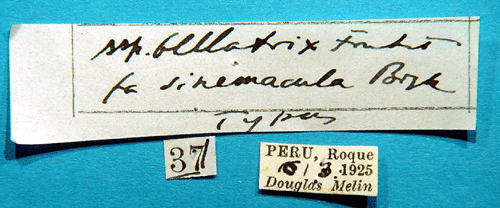 ssp. bellatrix Fruhst
fa sinemacula Bryk
Typus
37
PERU, Roque
6/3.1925
Douglas Melin